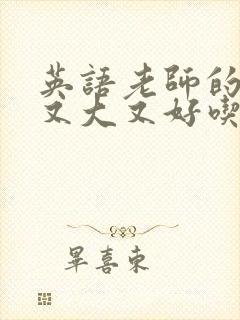 英語老師的
又大又好喫
畢喜東